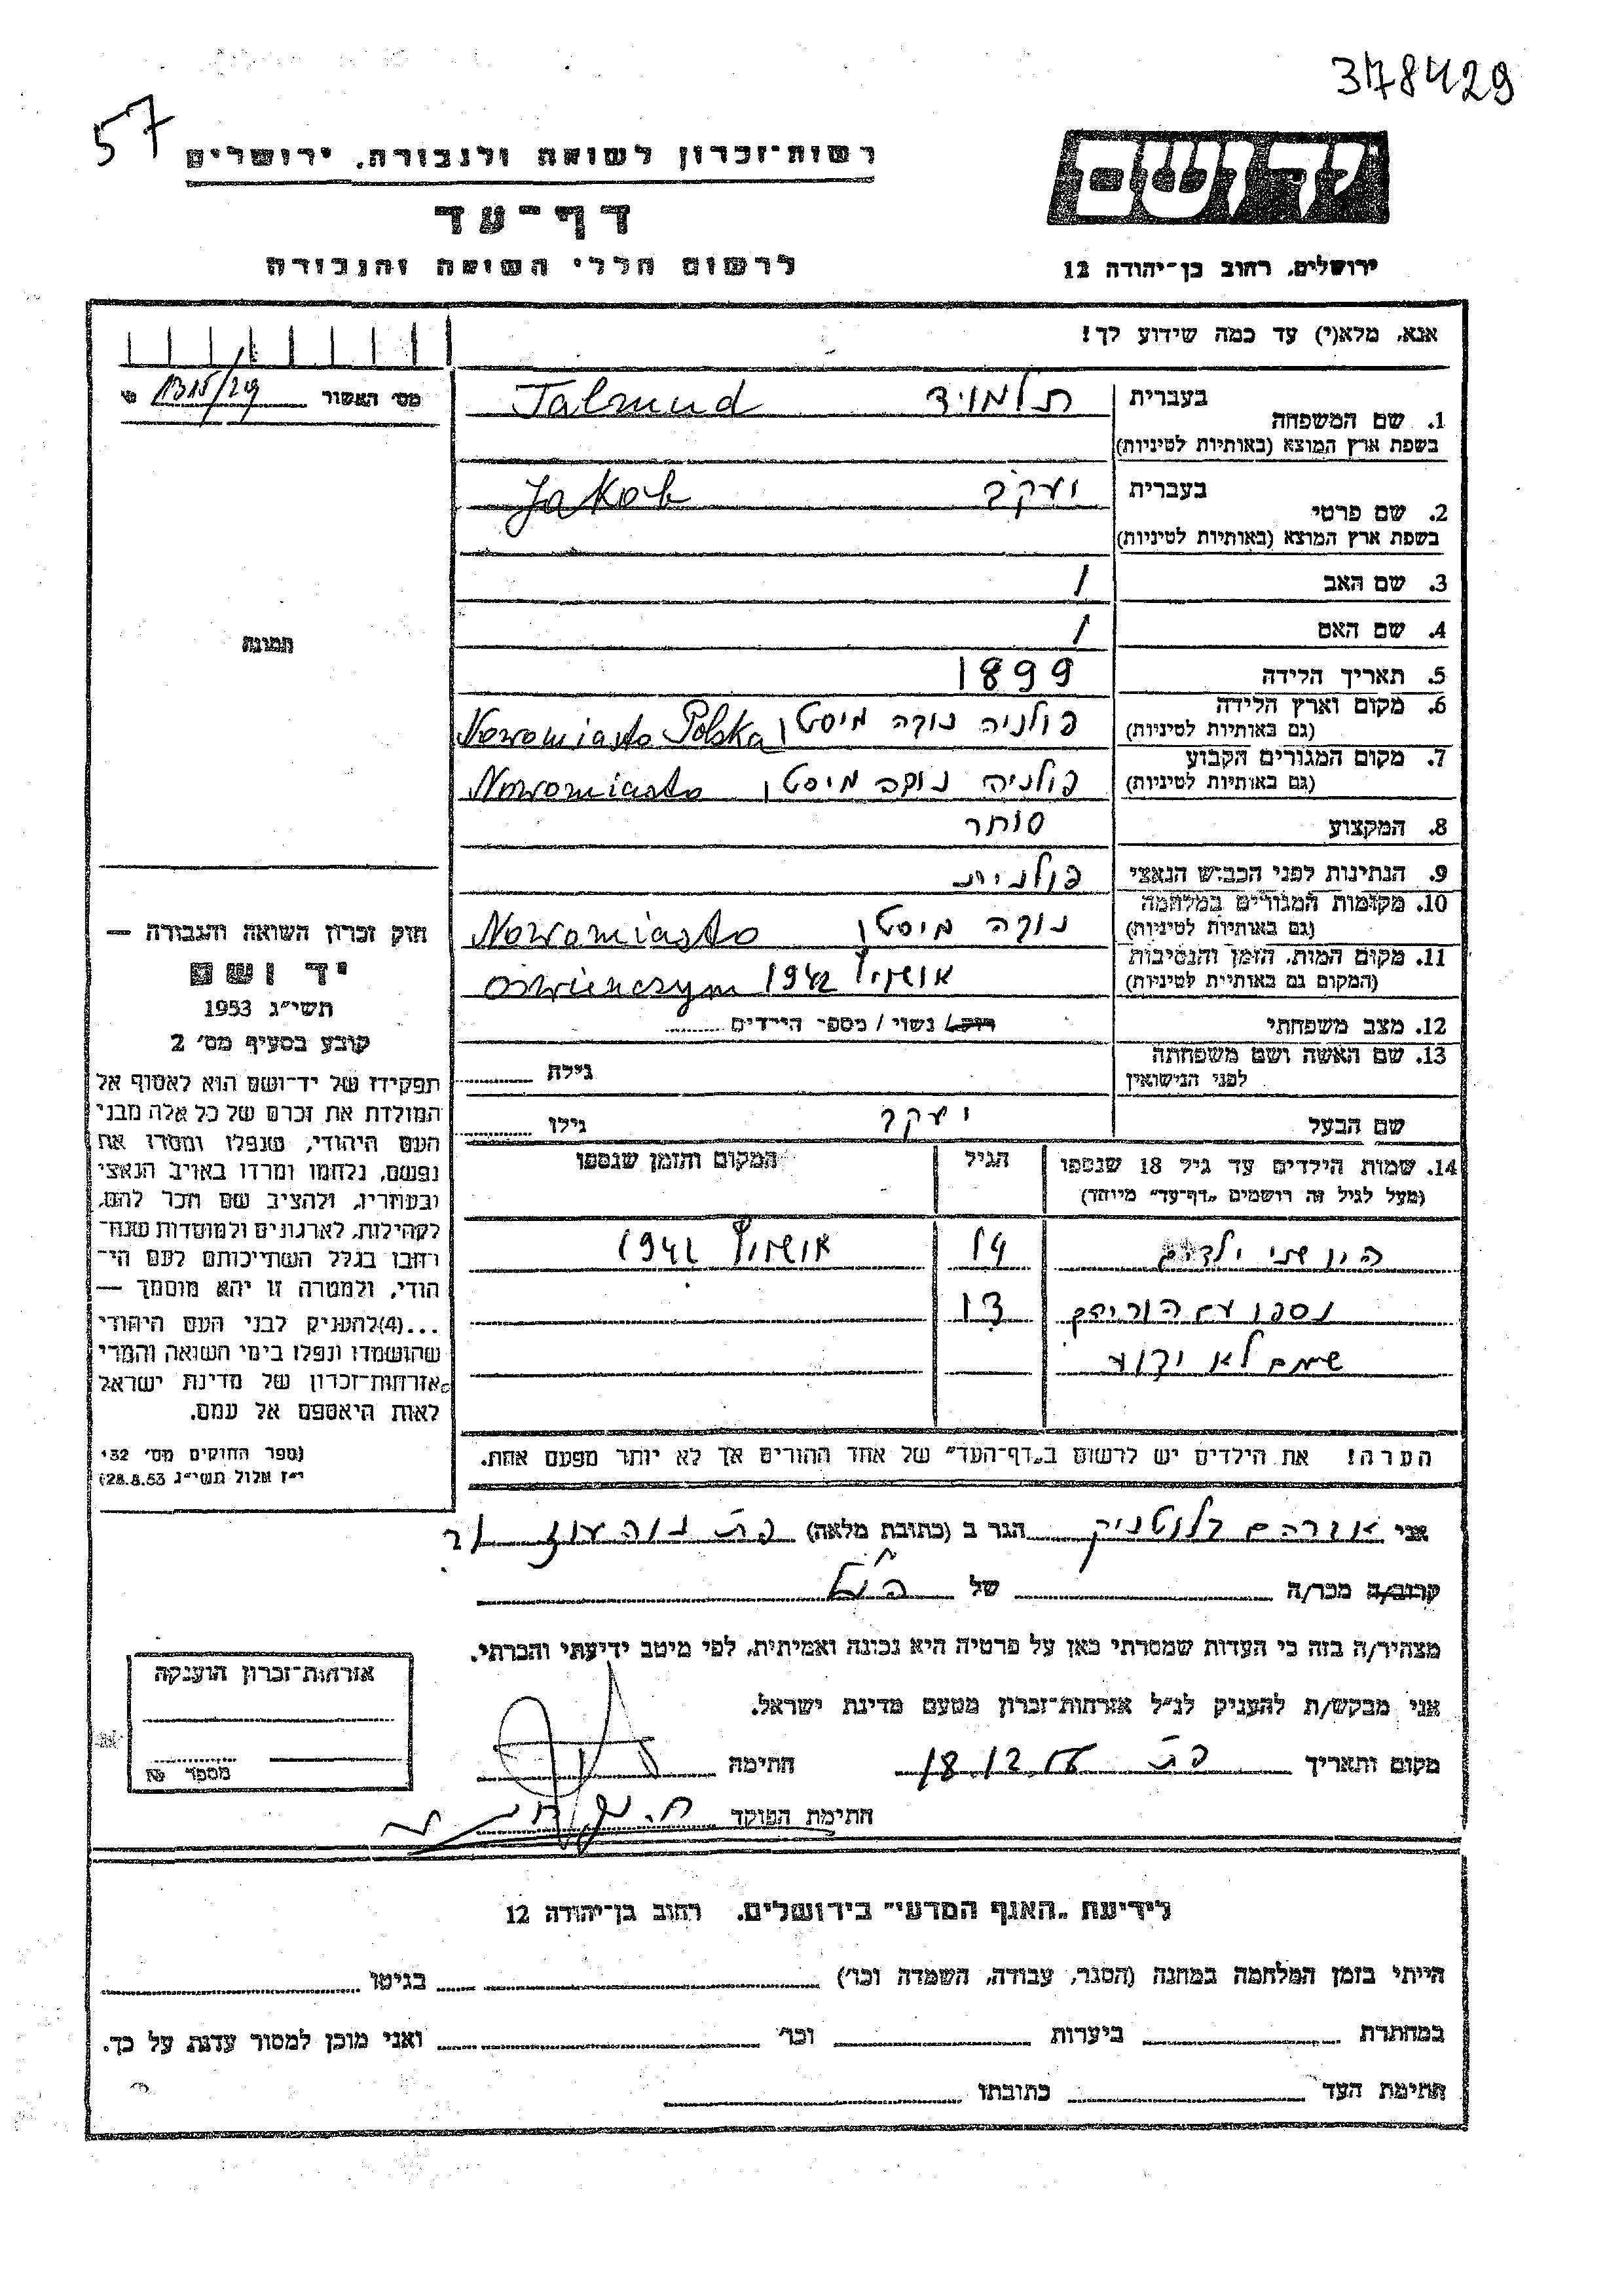 378429
57
יד ושם
רשות־זכרון לשואה ולגבורה, ירושלים
דף־עד
לרשום חללי השואה והגבורה
ירושלים, רחוב בן־יהודה 12
אנא, מלא(י) עד כמה שידוע לך!
מס׳ האשור 1315/29
1. שם המשפחה בעברית תלמיד Talmud
בשפת ארץ המוצא (באותיות לטיניות)
2. שם פרטי בעברית יעקב Jakob
בשפת ארץ המוצא (באותיות לטיניות)
3. שם האב /
4. שם האם /
5. תאריך הלידה 1899
6. מקום וארץ הלידה (גם באותיות לטיניות) פולניה נובה מיסטו Nowomiasto Polska
7. מקום המגורים הקבוע (גם באותיות לטיניות) פולניה נובה מיסטו Nowomiasto
8. המקצוע סוחר
9. הנתינות לפני הכבוש הנאצי פולנית
10. מקומות המגורים במלחמה (גם באותיות לטיניות) נובה מיסטו Nowomiasto
11. מקום המות, הזמן והנסיבות (המקום גם באותיות לטיניות) אושויץ 1942 Oswienczym
12. מצב משפחתי רווק/ נשוי / מספר הילדים
13. שם האשה ושם משפחתה לפני הנישואין גילה
שם הבעל יעקב גילו
14. שמות הילדים עד גיל 18 שנספו הגיל המקום והזמן שנספו
(מעל לגיל זה רושמים „דף־עד״ מיוחד)
היו שני ילדים 14 אושויץ 1942
נספו עם הוריהם 13
שמם לא ידוע
הערה! את הילדים יש לרשום ב„דף־העד״ של אחד ההורים אך לא יותר מפעם אחת.
תמונה
חוק זכרון השואה והגבורה —
יד ושם
תשי״ג 1953
קובע בסעיף מס׳ 2
תפקידו של יד־ושם הוא לאסוף אל
המולדת את זכרם של כל אלה מבני
העם היהודי, שנפלו ומסרו את
נפשם, נלחמו ומרדו באויב הנאצי
ובעוזריו, ולהציב שם וזכר להם,
לקהילות, לארגונים ולמוסדות שנח־
רבו בגלל השתייכותם לעם הי־
הודי, ולמטרה זו יהא מוסמך —
...(4)להעניק לבני העם היהודי
שהושמדו ונפלו בימי השואה והמרי
אזרחות־זכרון של מדינת ישראל
לאות היאספם אל עמם.
(ספר החוקים מס׳ 132
י״ז אלול תשי״ג 28.8.53)
אני אברהם הגר ב (כתובת מלאה)
קרוב/ה מכר/ה של
מצהיר/ה בזה כי העדות שמסרתי כאן על פרטיה היא נכונה ואמיתית, לפי מיטב ידיעתי והכרתי.
אני מבקש/ת להעניק לנ״ל אזרחות־זכרון מטעם מדינת ישראל.
מקום ותאריך 18.12.56 חתימה
חתימת הפוקד
אזרחות־זכרון הוענקה
מספר №
לידיעת „האגף המדעי״ בירושלים, רחוב בן־יהודה 12
הייתי בזמן המלחמה במחנה (הסגר, עבודה, השמדה וכו׳) בגיטו
במחתרת ביערות וכו׳ ואני מוכן למסור עדות על כך.
חתימת העד כתובתו